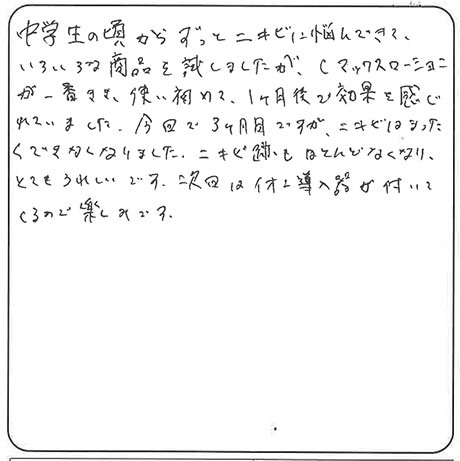 中学生の頃からずっとニキビに悩んできて、
いろいろな商品を試しましたが、Cマックスローション
が一番きき、使い初めて、1ヶ月後で効果を感じ
れていました。今回で3ヶ月目ですが、ニキビはまった
くできなくなりました。ニキビ跡もほとんどなくなり、
とてもうれしいです。次回はイオン導入器が付いて
くるので楽しみです。